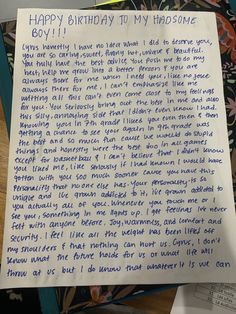 HAPPY BIRTHDAY TO MY HADSOME
BOY!!!
Cyrus, honestly I have no idea what I did to deserve you,
you are so caring, sweet, funny, hot, unique & beautiful.
You truly have the best advice you push me to do my
best, help me grow into a better person & you are
always there for me when I need you, like no one's
there for me, I can't emphasize like me
writing all this can't even come close to my feelings
for you. You seriously bring out the best in me and also
this silly, annoying side that I didn't even know I had.
Knowing you in 7th grade I liked you even then &
getting a chance to see you again in 9th grade was
the best and so much fun cause we would do stupid
things and honestly were the best duo in all games
except for basketball & I can't believe that I didn't know
you liked me, like seriously if I had known I would have
gotten with you so much sooner cause you have this
personality that no one else has. Your personality is so
unique and I've grown addicted to it, I've grown addicted to
you actually all of you. Whenever you touch me or I
see you, something in me lights up. I get feelings I've never
felt with anyone before. Joy, warmness, and comfort and
security. I feel like all the weight has been lifted off
my shoulders & that nothing can hurt us. Cyrus, I don't
know what the future holds for us or what life will
throw at us but I do know that whatever it is we can